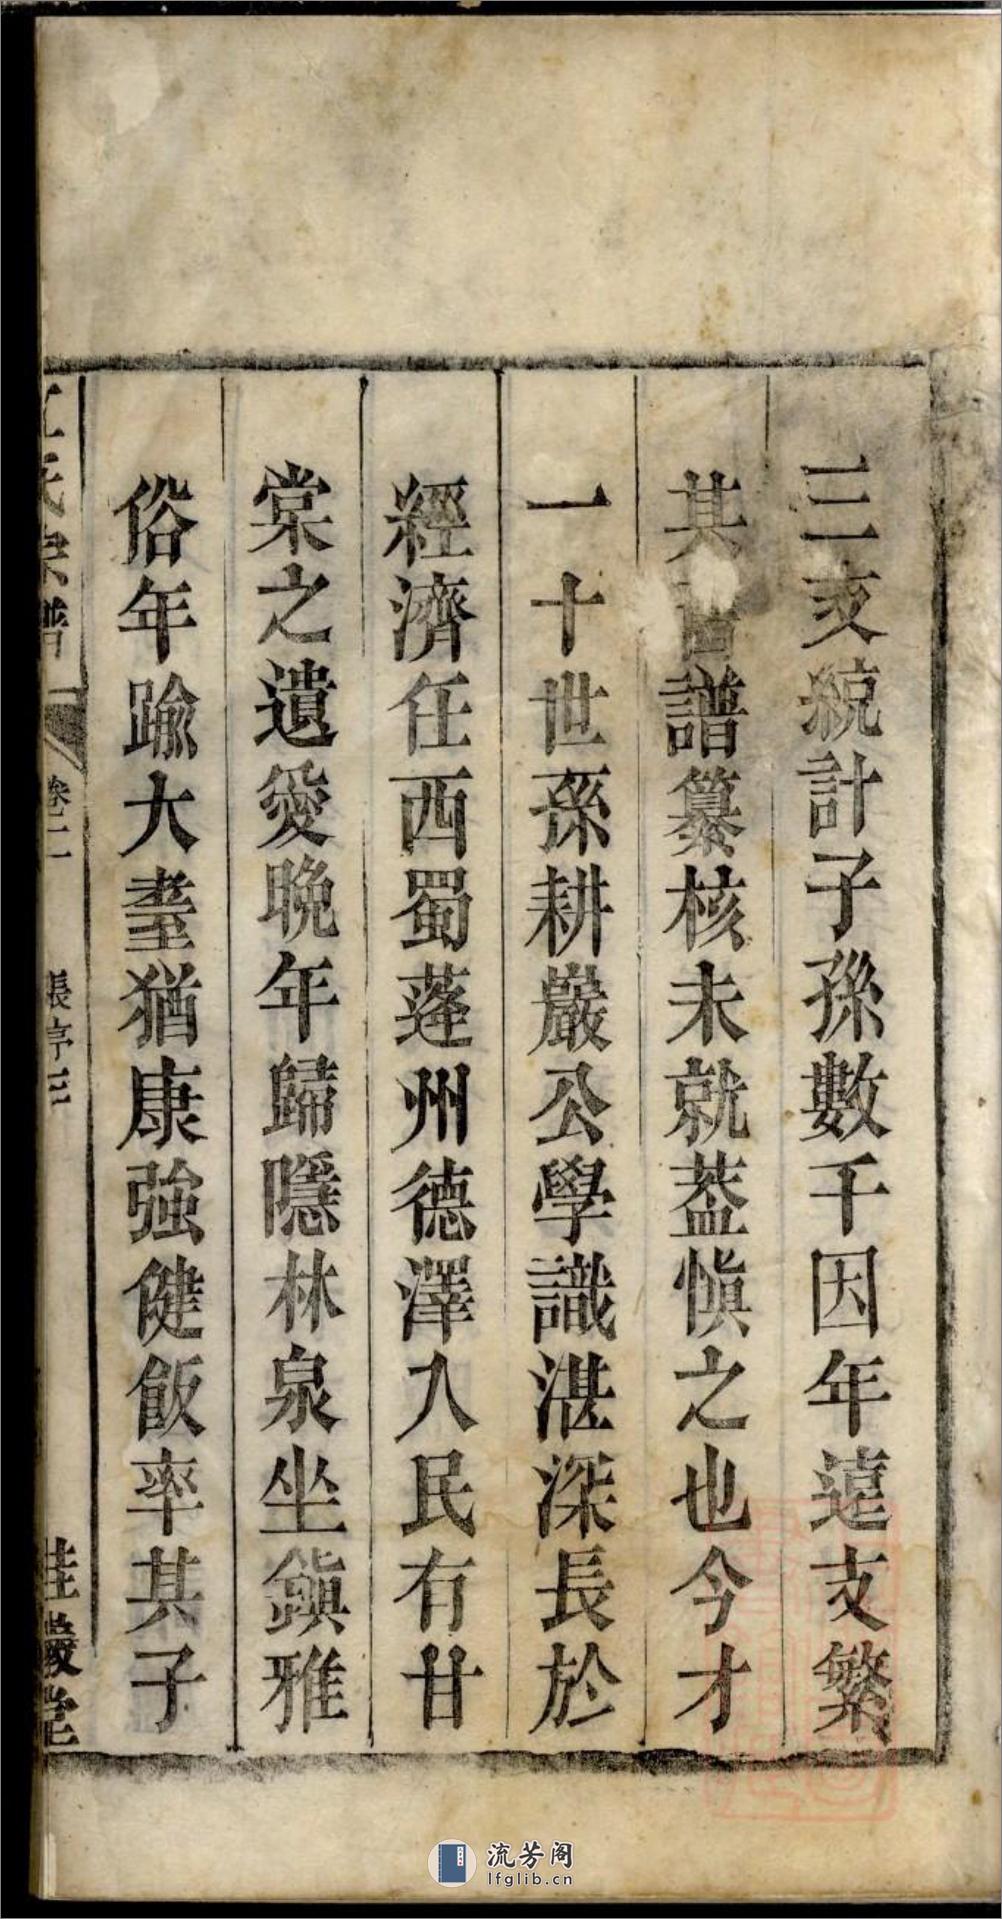 三支統計子孫數千因年遠支繁
其舊譜纂核未就葢慎之也今才
一十世孫耕巖公學識湛深長於
經濟任西蜀蓬州德澤入民有甘
棠之遺愛晩年歸隱林泉坐鎭雅
俗年踰大耋猶康強健飯率其子
氏宗譜 卷二 張序三 桂巖堂
流芳阁
lfglib.cn